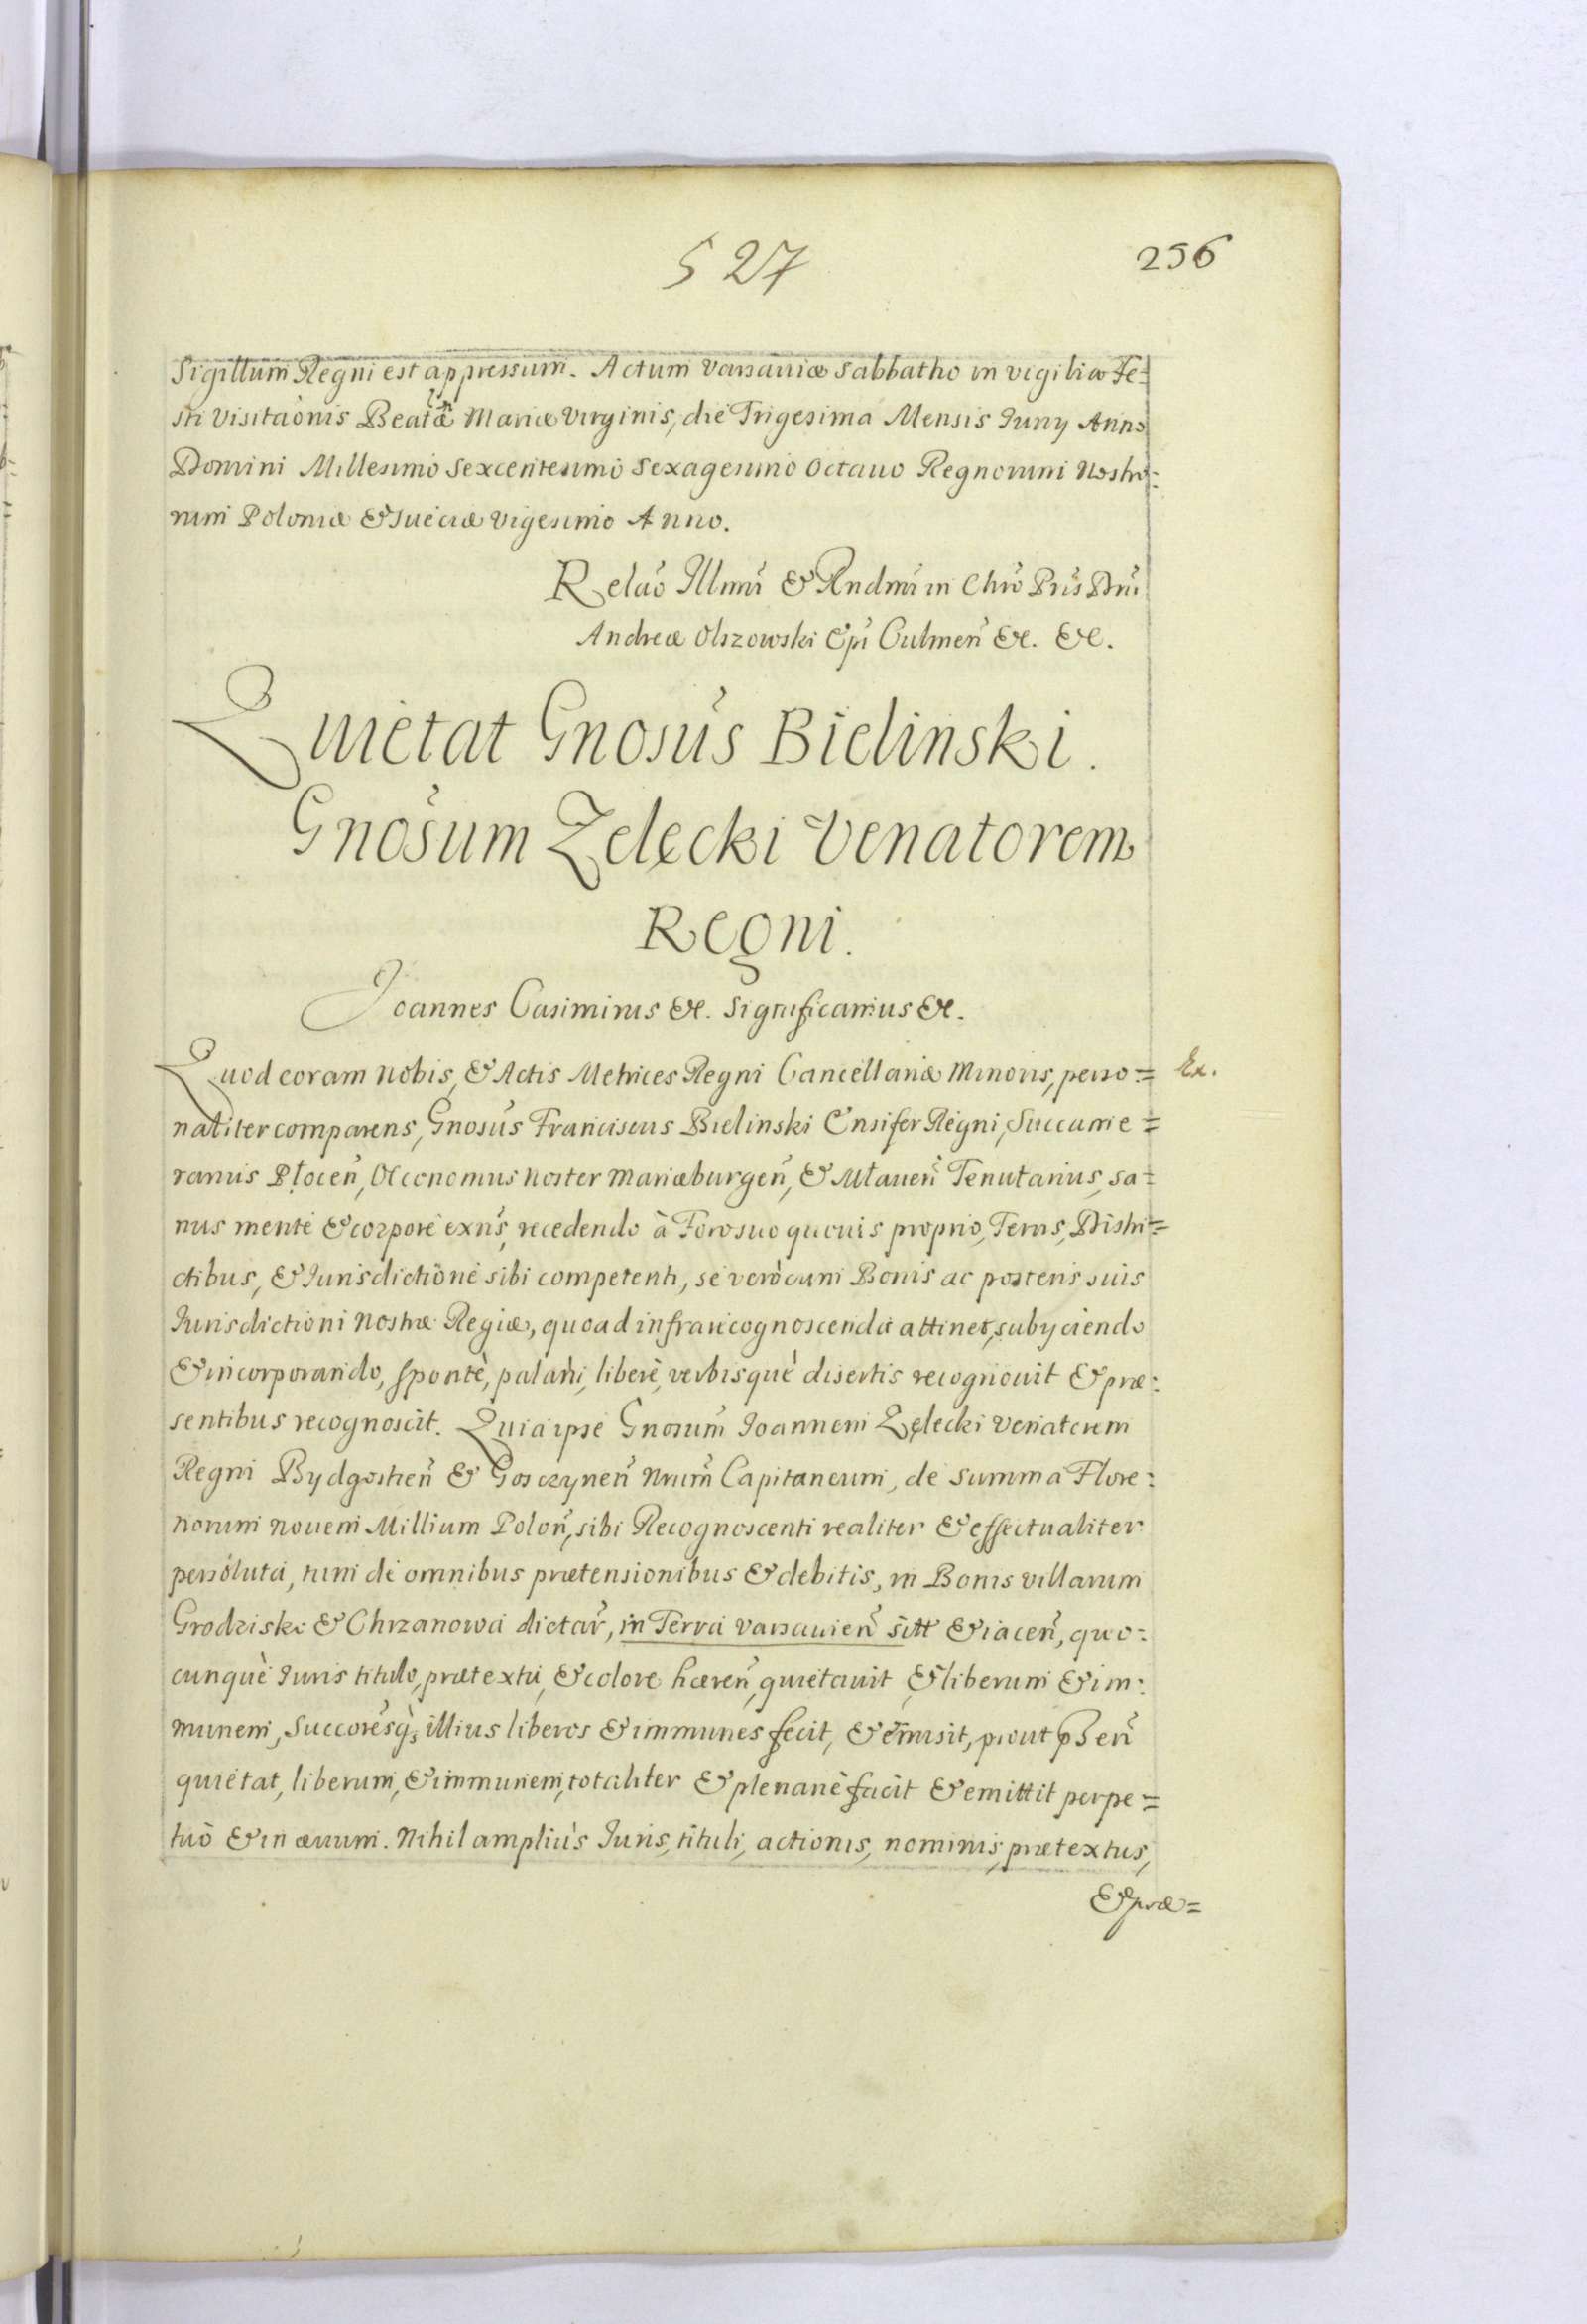 527
256
Sigillum Regni est appressum. Actum Varsaviæ Sabbatho in vigilia Fe=
sti Visitaõnis Beatæ Mariæ Virginis, die Trigesima Mensis Iuny Anno
Domini Millesimo Sexcentesimo Sexagesimo Octauo Regnorum Nostro:
rum Poloniæ & Sueciæ Vigesimo Anno.
Relaõ Illm̃i & Rndm̃i in Chr̃o Pr̃is Dñi
Andreæ Olszowski Ep̃i Culmeñ &c. &c.
Quietat Gnosũs Bielinski.
Gnosũm Zelęcki Venatorem
Regni.
Joannes Casimirus &c. Significamus &c.
Quod coram Nobis, & Actis Metrices Regni Cancellariæ Minoris, perso:=
Ex.
naliter comparens, Gnosũs Franciscus Bielinski Ensifer Regni, Succame=
rarius Płoceñ, Oeconomus Noster Mariæburgeñ, & Mławeñ Tenutarius, sa=
nus mente & corpore exñs, recedendo à Foro suo quouis proprio, Terris, Distri=
ctibus, & Iurisdictione sibi competenti, se verò cum Bonis ac posteris suis
Iurisdictioni Nostræ Regiæ, quoad infra recognoscenda attinet, subyciendo
& incorporando, sponte, palàm, liberè, verbisquè disertis recognouit & præ:
sentibus recognoscit. Quia ipse Gnosum̃ Ioannem Zęlecki Venatorem
Regni Bydgostieñ & Gosczyneñ Nrum̃ Capitaneum, de Summa Flore:
norum Nouem Millium Poloñ, sibi Recognoscenti realiter & effectualiter
persoluta, tum de omnibus prætensionibus & debitis, in Bonis villarum
Grodzisko & Chrzanowa dictar̃, in Terra Varsauieñ sitt & iaceñ, quo:
cunquè Iuris titulo, prætextu, & colore hæreñ, quietauit & liberum & im:
munem, Succoresq́ illius liberos & immunes fecit, & emisit, prout p̃señ
quietat, liberum, & immunem, totaliter & plenariè facit & emittit perpe=
tuò & in æuum. Nihil ampliùs Iuris, tituli, actionis, nominis, prætextus,
& præ=